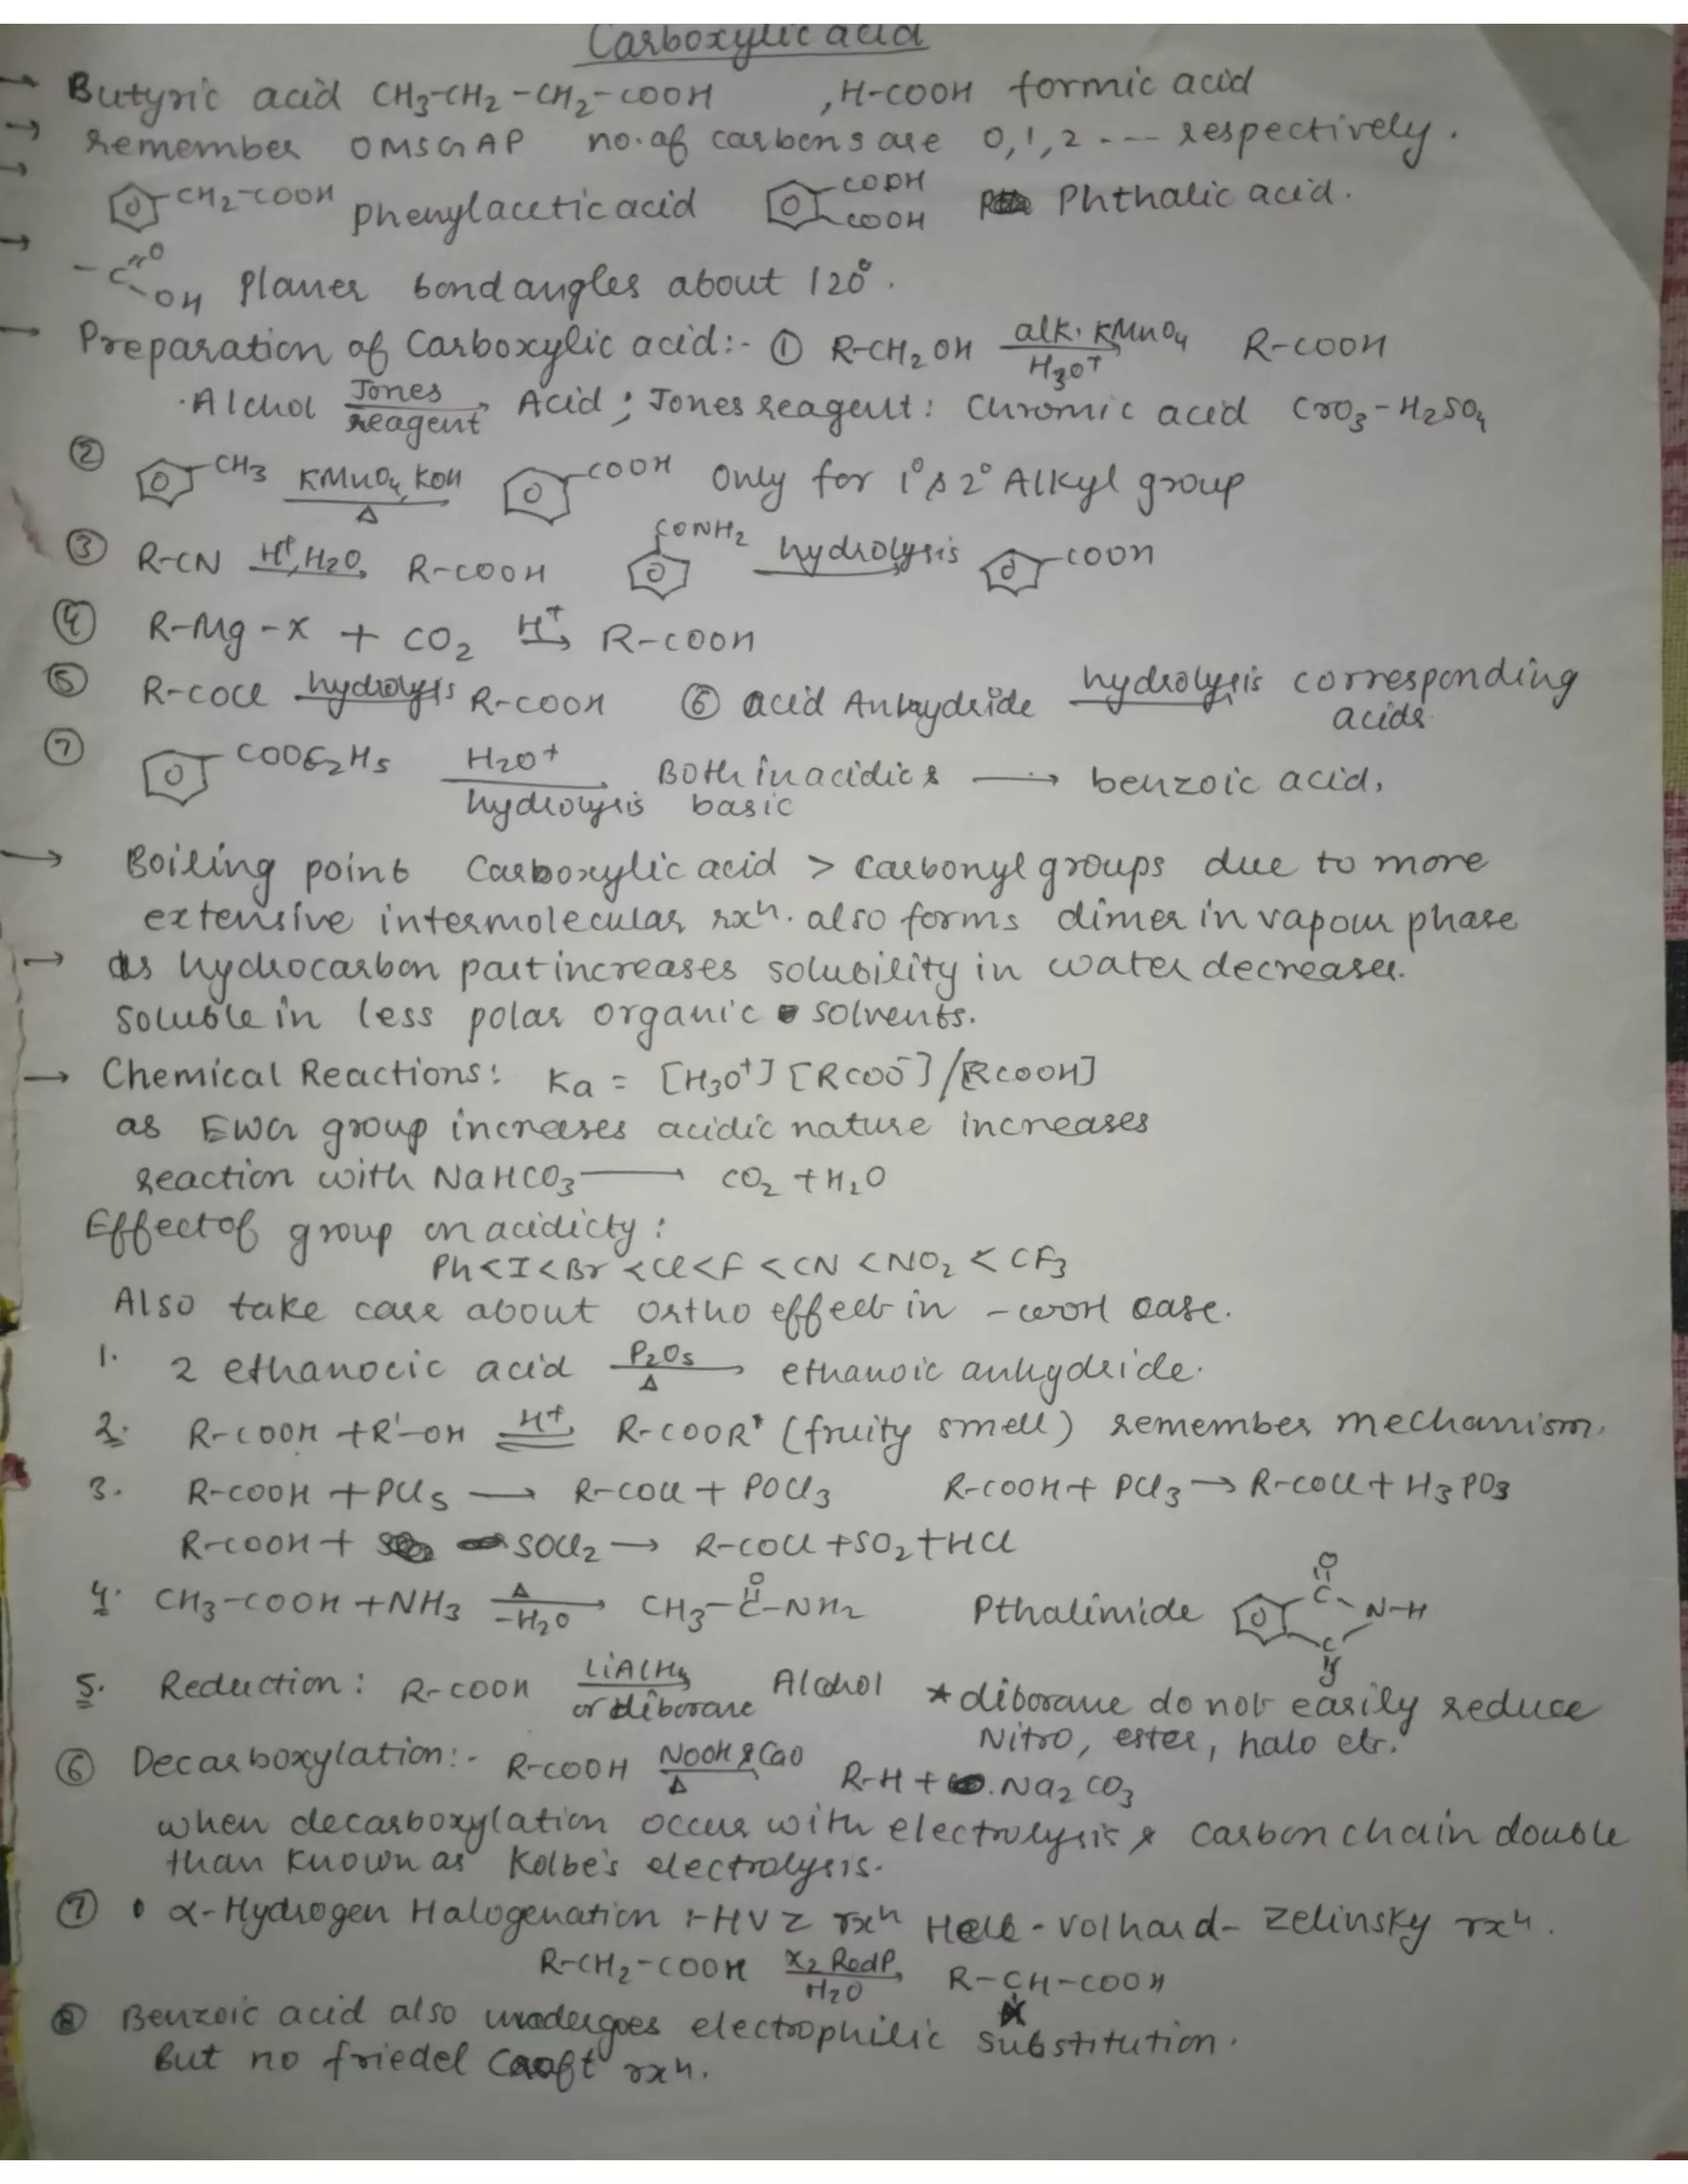 Carboxylic acid
→ Butyric acid CH3-CH2-CH2-COOH , H-COOH formic acid
→ remember OMSGAP no. of carbons are 0,1,2 --- respectively.
→ CH2-COOH phenylacetic acid COOH COOH Phthalic acid.
→ -C=O OH Planer bond angles about 120°.
→ Preparation of Carboxylic acid:- ① R-CH2OH alk. KMnO4 H3O+ R-COOH
· Alchol Jones reagent → Acid ; Jones reagent: Chromic acid CrO3-H2SO4
② CH3 KMnO4, KOH Δ COOH Only for 1° & 2° Alkyl group
③ R-CN H+, H2O → R-COOH CONH2 hydrolysis → COOH
④ R-Mg-X + CO2 H+ → R-COOH
⑤ R-COCl hydrolysis R-COOH ⑥ acid Anhydride hydrolysis → corresponding acids
⑦ COOC2H5 H2O+ hydrolysis → Both in acidic & basic → benzoic acid.
→ Boiling point Carboxylic acid > Carbonyl groups due to more
extensive intermolecular rxn. also forms dimer in vapour phase
→ as hydrocarbon part increases solubility in water decreases.
soluble in less polar organic solvents.
→ Chemical Reactions: Ka = [H3O+] [RCOO-] / [RCOOH]
as EWG group increases acidic nature increases
reaction with NaHCO3 → CO2 + H2O
Effect of group on acidicty :
Ph < I < Br < Cl < F < CN < NO2 < CF3
Also take care about ortho effect in -COOH case.
1. 2 ethanocic acid P2O5 Δ → ethanoic anhydride.
2. R-COOH + R'-OH H+ ⇌ R-COOR' (fruity smell) remember mechanism.
3. R-COOH + PCl5 → R-COCl + POCl3 R-COOH + PCl3 → R-COCl + H3PO3
R-COOH + SOCl2 → R-COCl + SO2 + HCl
4. CH3-COOH + NH3 Δ -H2O → CH3-C(=O)-NH2 Pthalimide O C N-H C O
5. Reduction : R-COOH LiAlH4 or diborane Alcohol * diborane do not easily reduce
Nitro, ester, halo etc.
⑥ Decarboxylation:- R-COOH NaOH & CaO Δ → R-H + Na2CO3
when decarboxylation occur with electrolysis & carbon chain double
than known as Kolbe's electrolysis.
⑦ • α-Hydrogen Halogenation :- HVZ rxn Hell-Volhard-Zelinsky rxn.
R-CH2-COOH X2 Red P, H2O → R-CH-COOH X
⑧ Benzoic acid also undergoes electrophilic substitution.
But no friedel Craft rxn.